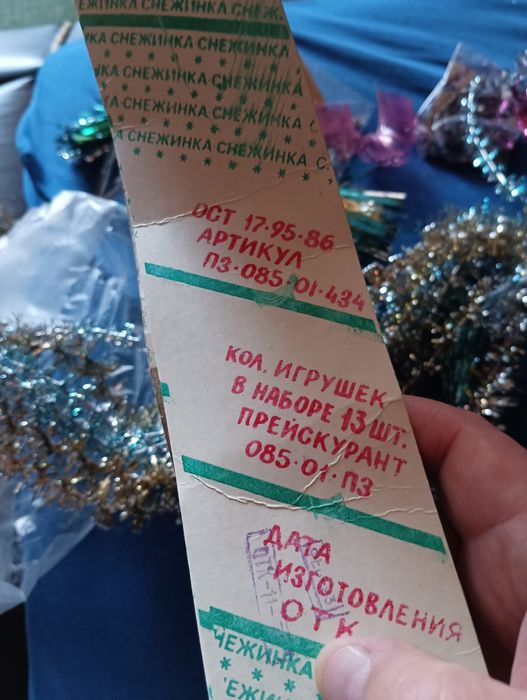 СНЕЖИНКА СНЕЖИНКА
СНЕЖИНКА СНЕЖИНКА
СНЕЖИНКА СНЕЖИНКА
СНЕЖИНКА СНЕЖИНКА
СНЕЖИНКА СНЕЖИНКА С
ОСТ 17-95-86
АРТИКУЛ
ПЗ-085-01-434
КОЛ. ИГРУШЕК
В НАБОРЕ 13 ШТ.
ПРЕЙСКУРАНТ
085-01-ПЗ
ДАТА
ИЗГОТОВЛЕНИЯ
ОТК
ОТК-11-
ЖИНКА